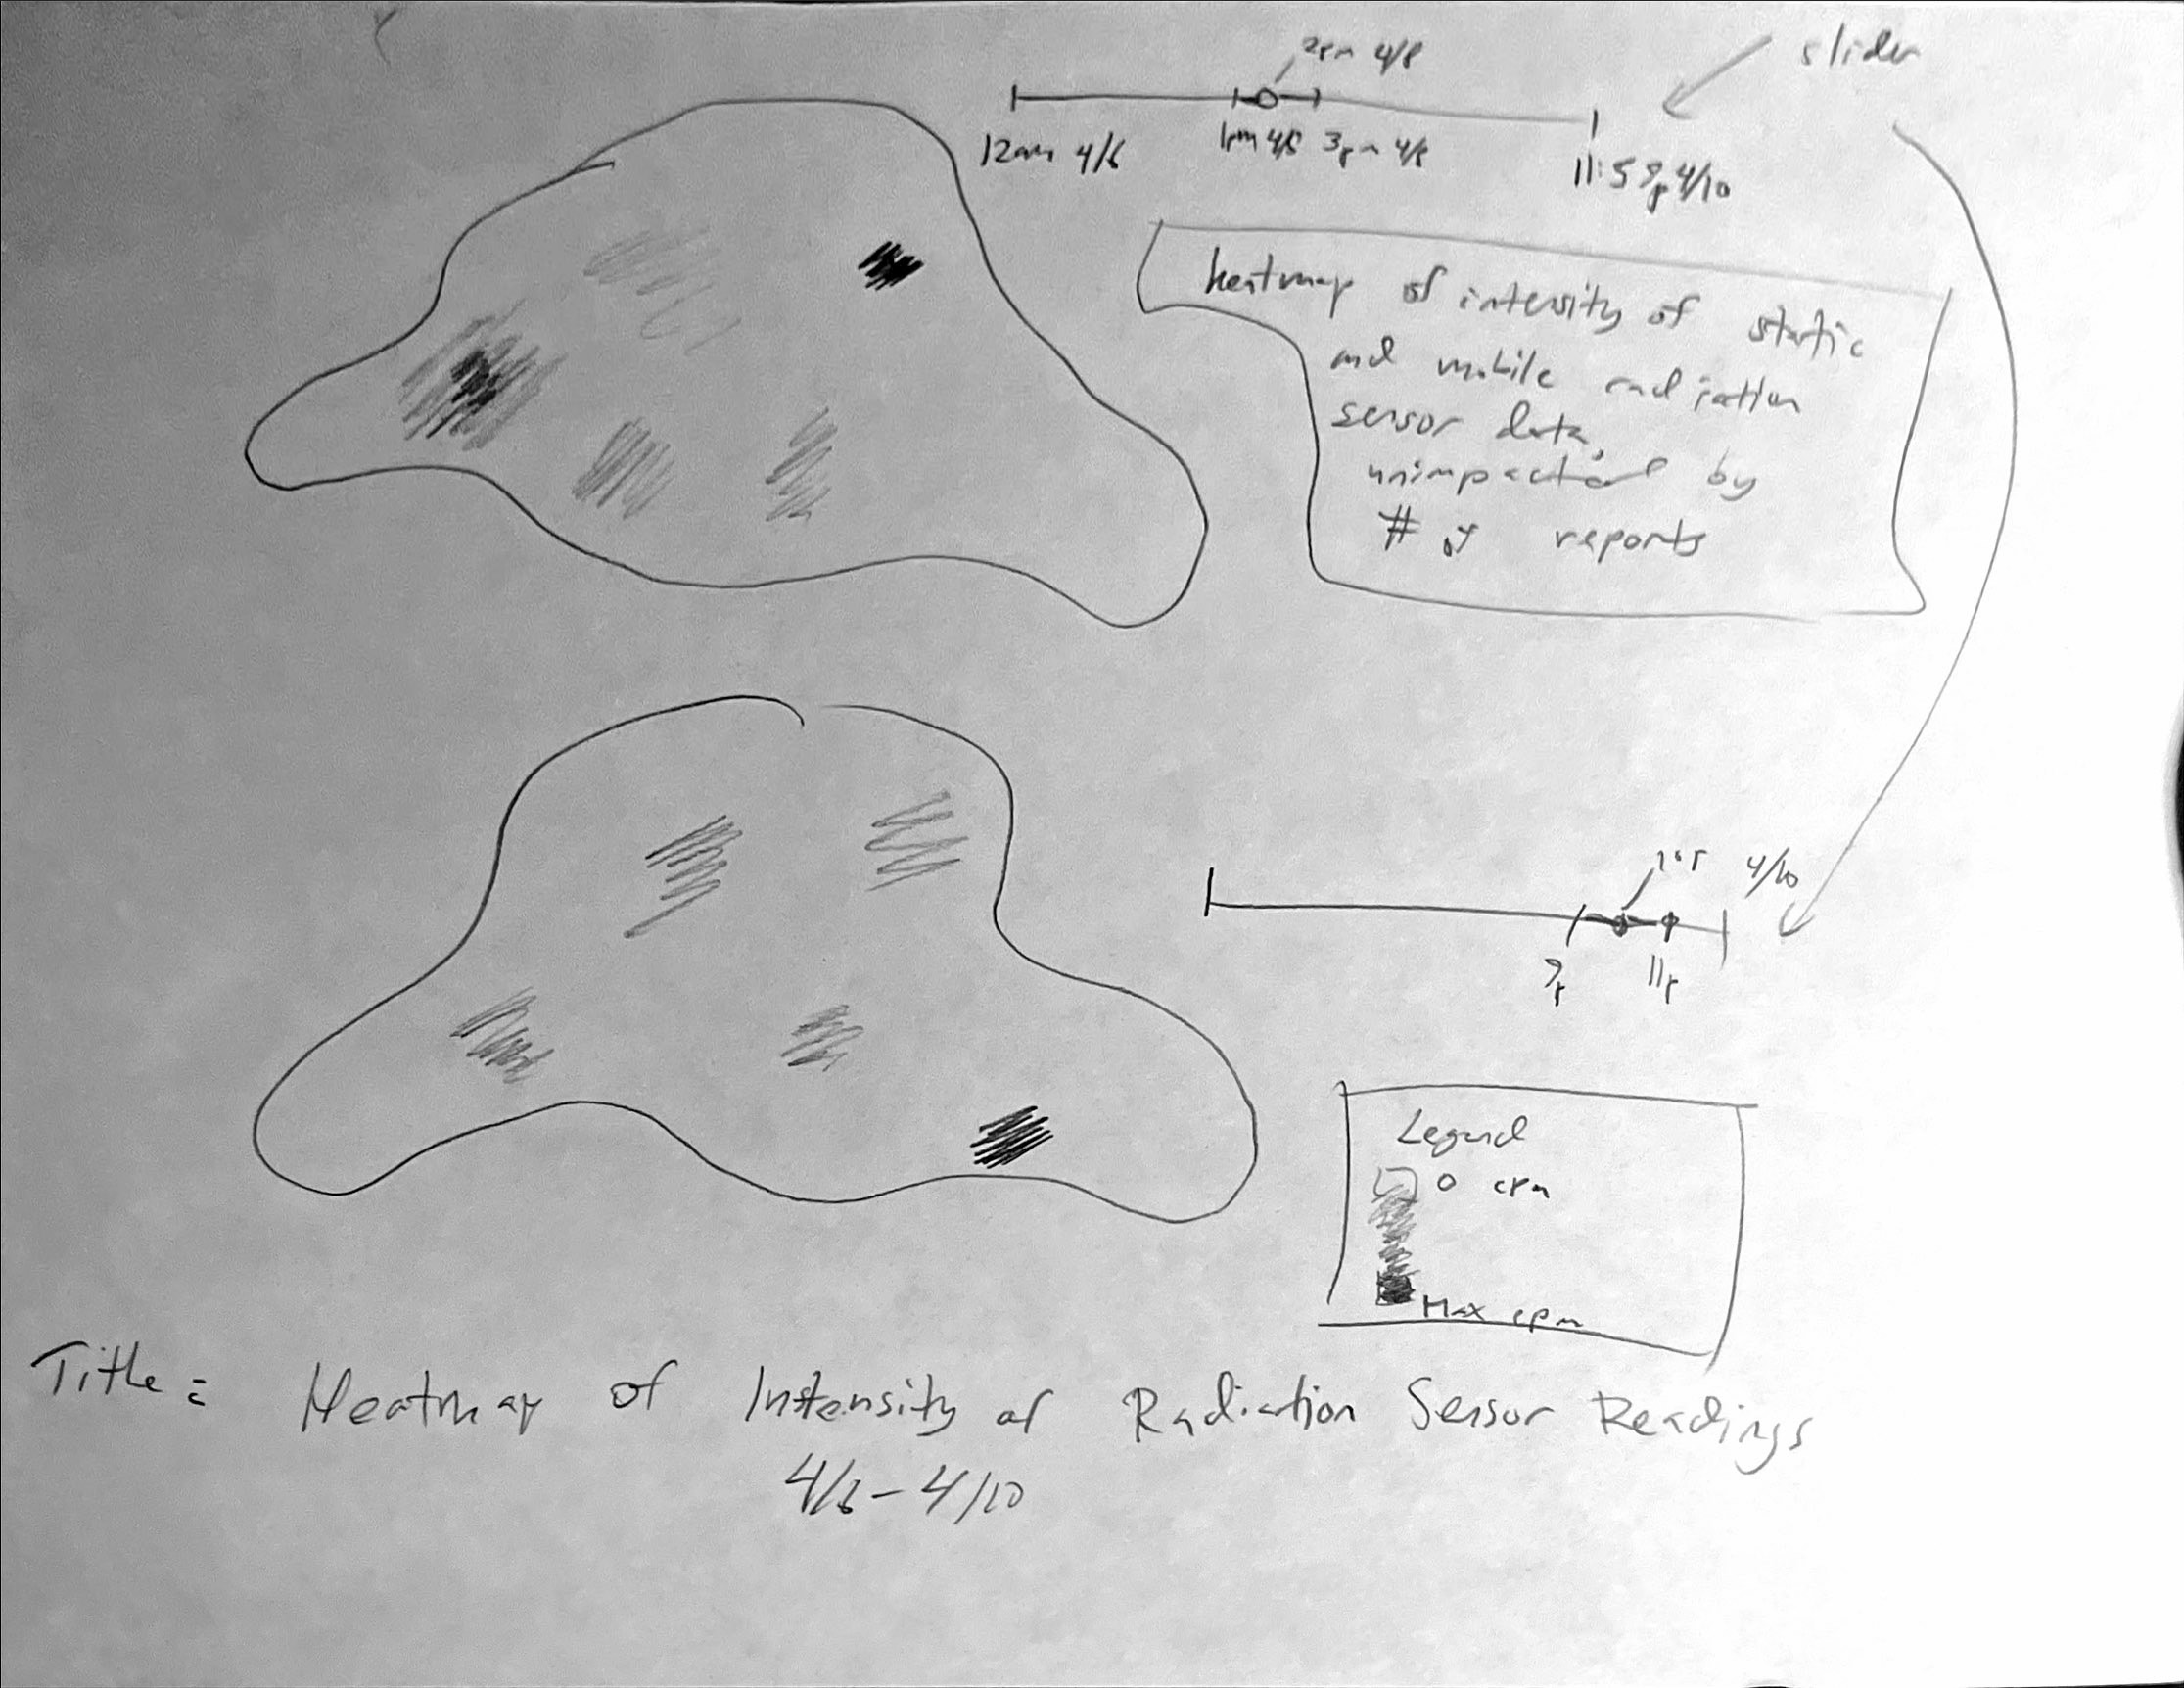 slider
2pm 4/8
12am 4/6
1pm 4/8 3pm 4/8
11:59p 4/10
heatmap of intensity of static
and mobile radiation
sensor data,
unimpacted by
# of reports
10p 4/10
9p
11p
Legend
0 cpm
Max cpm
Title: Heatmap of Intensity of Radiation Sensor Readings
4/6-4/10